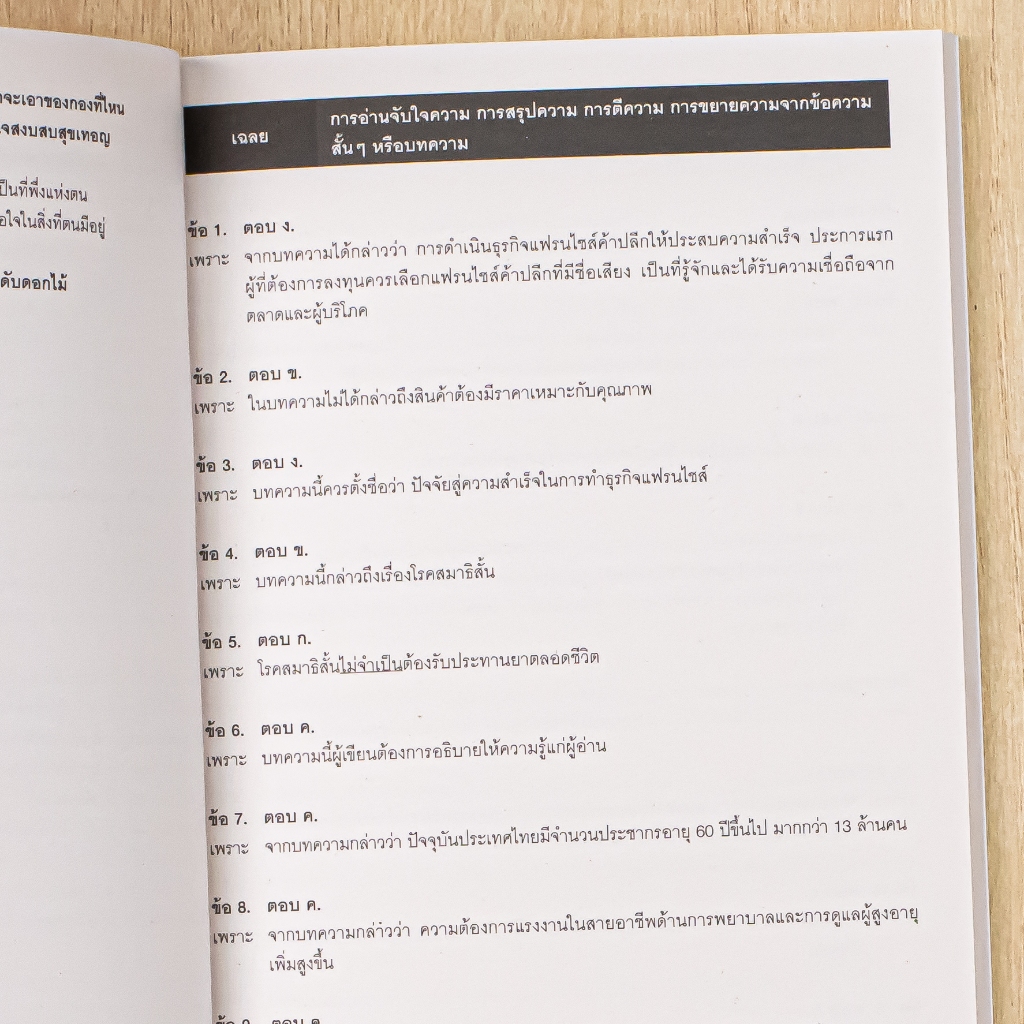 จะเอาของกองที่ไหน
จสงบสบสุขเทอญ
ป็นที่พึ่งแห่งตน
อใจในสิ่งที่ตนมีอยู่
ดับดอกไม้
เฉลย
การอ่านจับใจความ การสรุปความ การตีความ การขยายความจากข้อความ
สั้นๆ หรือบทความ
ข้อ 1. ตอบ ง.
เพราะ จากบทความได้กล่าวว่า การดำเนินธุรกิจแฟรนไชส์ค้าปลีกให้ประสบความสำเร็จ ประการแรก
ผู้ที่ต้องการลงทุนควรเลือกแฟรนไชส์ค้าปลีกที่มีชื่อเสียง เป็นที่รู้จักและได้รับความเชื่อถือจาก
ตลาดและผู้บริโภค
ข้อ 2. ตอบ ข.
เพราะ ในบทความไม่ได้กล่าวถึงสินค้าต้องมีราคาเหมาะกับคุณภาพ
ข้อ 3. ตอบ ง.
เพราะ บทความนี้ควรตั้งชื่อว่า ปัจจัยสู่ความสำเร็จในการทำธุรกิจแฟรนไชส์
ข้อ 4. ตอบ ข.
เพราะ บทความนี้กล่าวถึงเรื่องโรคสมาธิสั้น
ข้อ 5. ตอบ ก.
เพราะ โรคสมาธิสั้นไม่จำเป็นต้องรับประทานยาตลอดชีวิต
ข้อ 6. ตอบ ค.
เพราะ บทความนี้ผู้เขียนต้องการอธิบายให้ความรู้แก่ผู้อ่าน
ข้อ 7. ตอบ ค.
เพราะ จากบทความกล่าวว่า ปัจจุบันประเทศไทยมีจำนวนประชากรอายุ 60 ปีขึ้นไป มากกว่า 13 ล้านคน
ข้อ 8. ตอบ ค.
เพราะ จากบทความกล่าวว่า ความต้องการแรงงานในสายอาชีพด้านการพยาบาลและการดูแลผู้สูงอายุ
เพิ่มสูงขึ้น
ข้อ 9. ตอบ